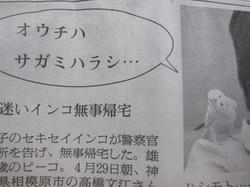 オウチハ
サガミハラシ…
迷いインコ無事帰宅
子のセキセイインコが警察官
所を告げ、無事帰宅した。雄
歳のピーコ。4月29日朝、神
県相模原市の高橋文江さん